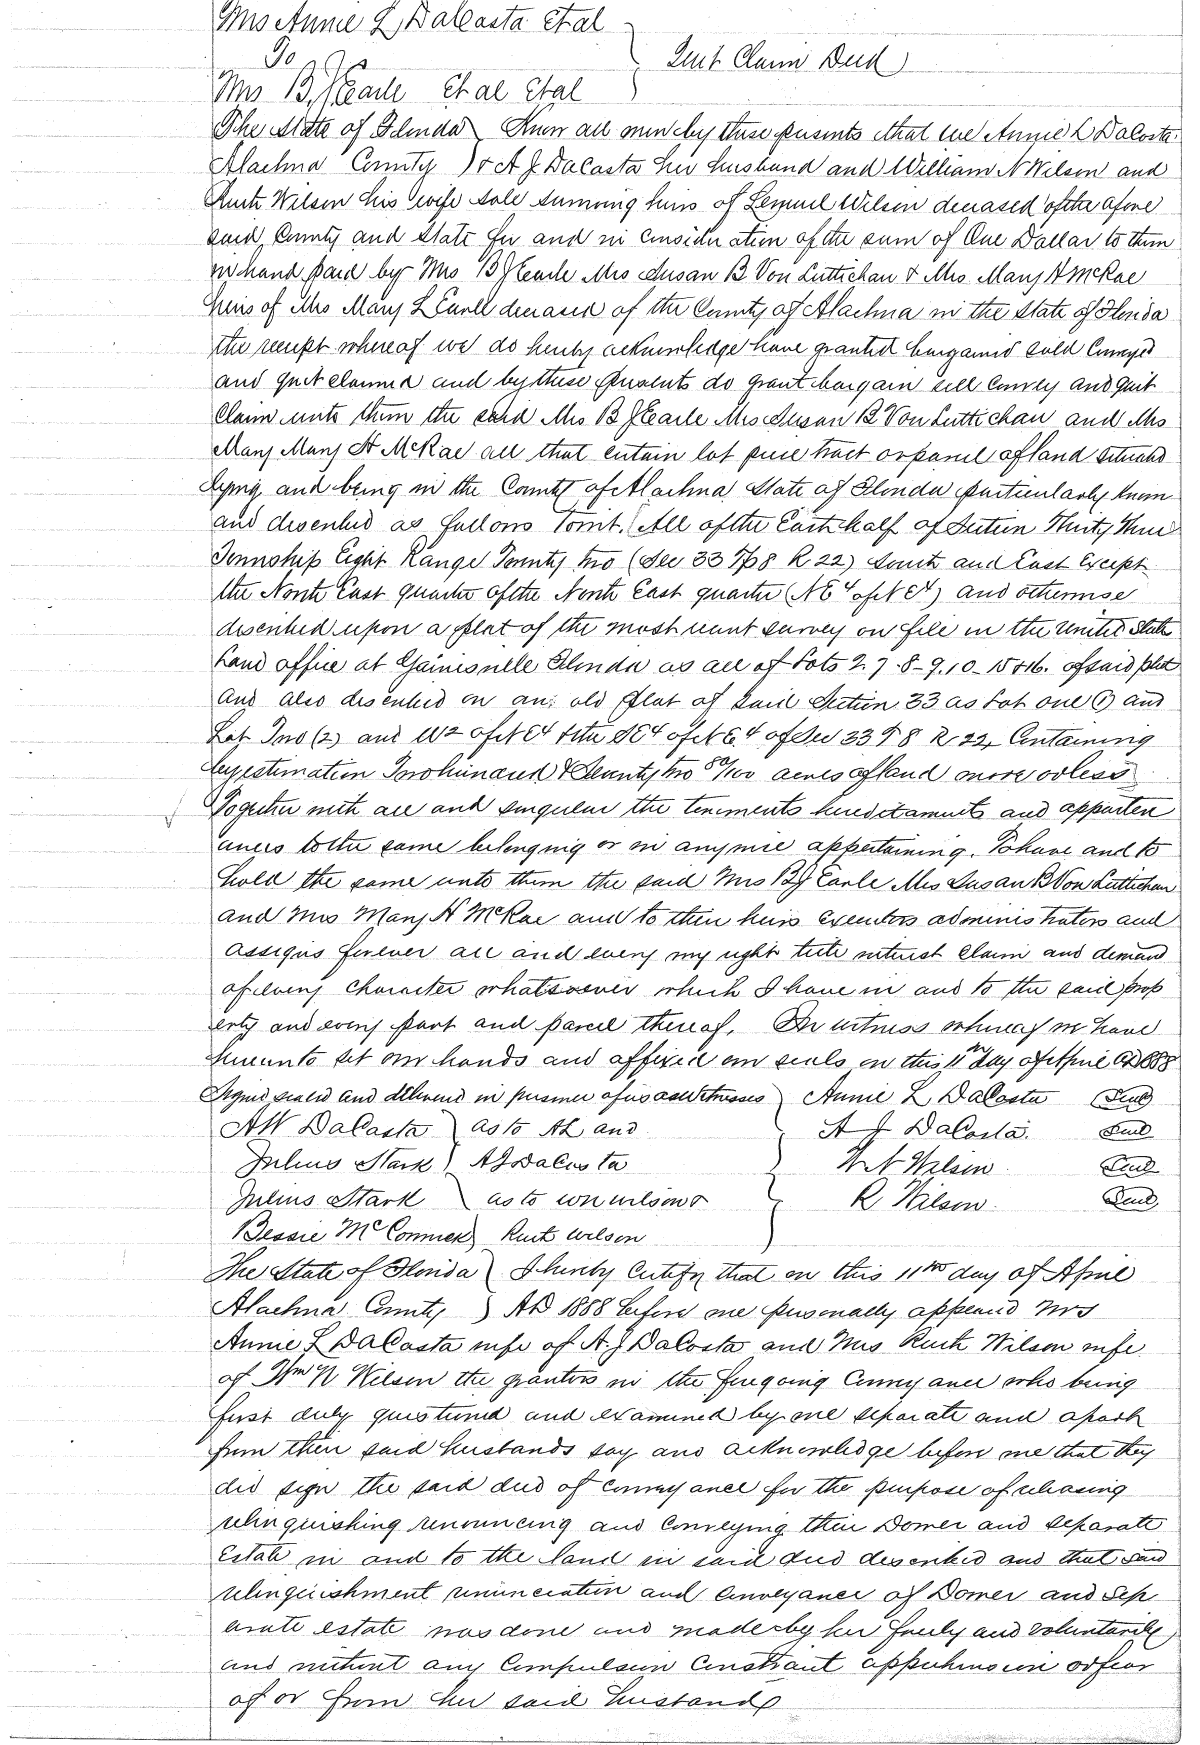 Mrs Annie L DaCosta et al
To
Quit Claim Deed
Mrs B J Earle et al et al
The State of Florida Know all men by these presents that we Annie L DaCosta
Alachua County & A J DaCosta her husband and William N Wilson and
Ruth Wilson his wife sole surviving heirs of Lemuel Wilson deceased of the afore
said County and State for and in consideration of the sum of One Dollar to them
in hand paid by Mrs B J Earle Mrs Susan B Von Luttichau & Mrs Mary H McRae
heirs of Mrs Mary L Earle deceased of the County of Alachua in the State of Florida
the receipt whereof we do hereby acknowledge have granted bargained sold Conveyed
and quit claimed and by these presents do grant bargain sell Convey and quit
Claim unto them the said Mrs B J Earle Mrs Susan B Von Luttichau and Mrs
Mary Mary H McRae all that certain lot piece tract or parcel of land situated
lying and being in the County of Alachua State of Florida particularly known
and described as follows Towit. All of the East half of Section Thirty Three
Township Eight Range Twenty two (Sec 33 Tp 8 R 22) South and East Except
the North East quarter of the North East quarter (NE 4 of NE 4) and otherwise
described upon a plat of the most recent survey on file in the United State
Land office at Gainesville Florida as all of Lots 2. 7. 8 - 9. 10 - 15 & 16. of said plat
and also described on an old plat of said Section 33 as Lot one (1) and
Lot Two (2) and W2 of NE4 & the SE4 of NE4 of Sec 33 T 8 R 22, Containing
by estimation Two hundred & Seventy two 50/100 acres of land more or less
Together with all and singular the tenements hereditaments and apperten
ances to the same belonging or in anywise appertaining. To have and to
hold the same unto them the said Mrs B J Earle Mrs Susan B Von Luttichau
and Mrs Mary H McRae and to their heirs Executors administrators and
assigns forever all and every my right title interest Claim and demand
of every character whatsoever which I have in and to the said prop
erty and every part and parcel thereof. In witness whereof we have
hereunto set our hands and affixed our seals on this 11th day of April AD 1888
Signed sealed and delivered in presence of us as witnesses Annie L DaCosta Seal
AW DaCosta as to AL and A J DaCosta. Seal
Julius Stark AJ DaCosta W N Wilson Seal
Julius Stark as to WN Wilson & R Wilson. Seal
Bessie McCormick Ruth Wilson
The State of Florida I hereby Certify that on this 11th day of April
Alachua County AD 1888 before me personally appeared Mrs
Annie L DaCosta wife of A. J DaCosta and Mrs Ruth Wilson wife
of Wm N Wilson the grantors in the foregoing Conveyance who being
first duly questioned and examined by me separate and apart
from their said husbands say and acknowledge before me that they
did sign the said deed of conveyance for the purpose of releasing
relinquishing renouncing and conveying their Dower and separate
Estate in and to the land in said deed described and that said
relinquishment renunciation and conveyance of Dower and sep
arate estate was done and made by her freely and voluntarily
and without any Compulsion Constraint apprehension or fear
of or from her said husband